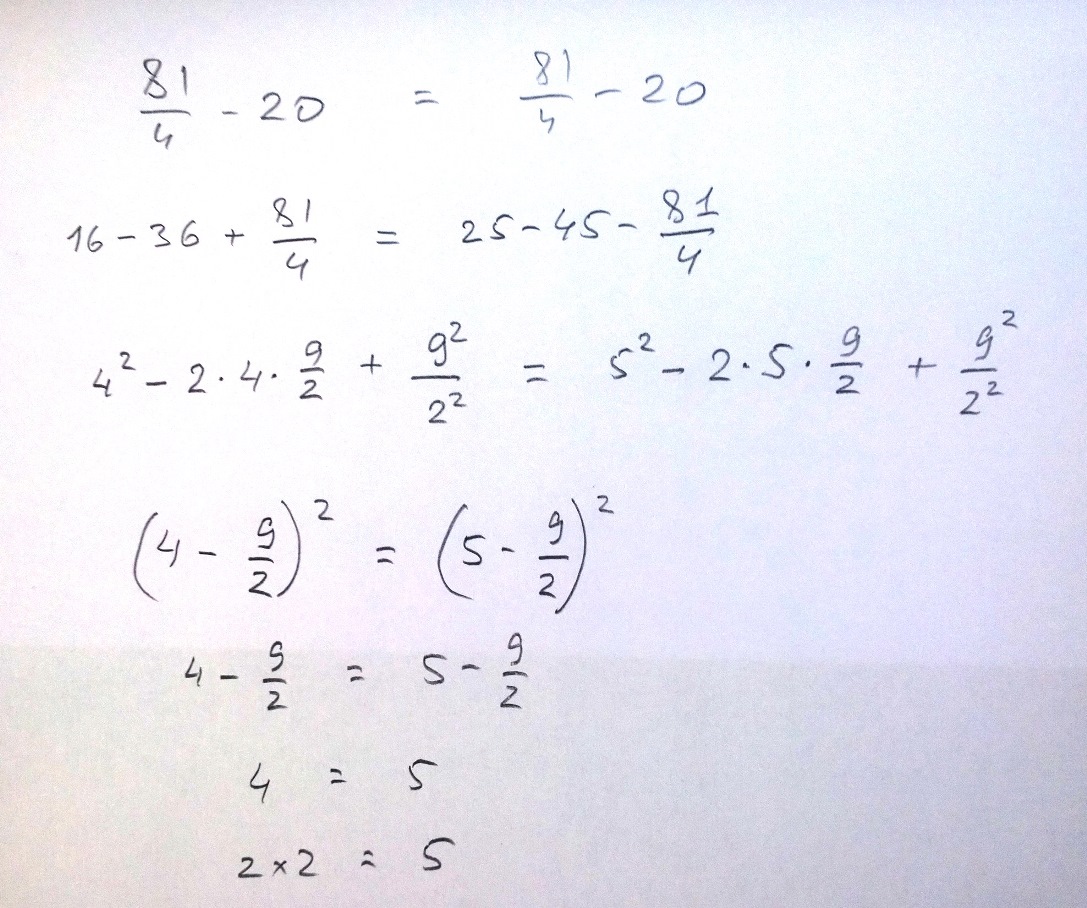 81/4 - 20 = 81/4 - 20
16 - 36 + 81/4 = 25 - 45 - 81/4
4² - 2·4·9/2 + 9²/2² = 5² - 2·5·9/2 + 9²/2²
(4 - 9/2)² = (5 - 9/2)²
4 - 9/2 = 5 - 9/2
4 = 5
2×2 = 5